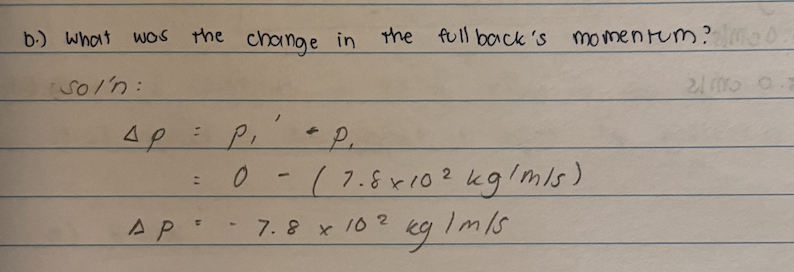 b.) What was the change in the fullback's momentum?
sol'n:
Δp = p₁' - p₁
= 0 - (7.8 x 10² kg/m/s)
Δp = - 7.8 x 10² kg/m/s